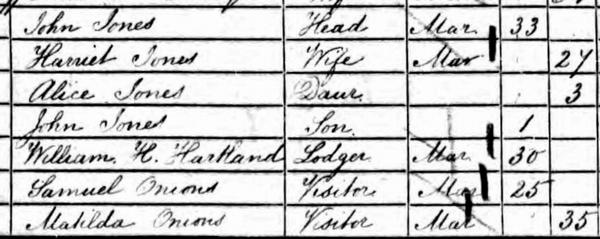 John Jones Head Mar 33
Harriet Jones Wife Mar 27
Alice Jones Daur. 3
John Jones Son. 1
William. H. Hartland Lodger Mar 30
Samuel Onions Visitor Mar 25
Matilda Onions Visitor Mar 35